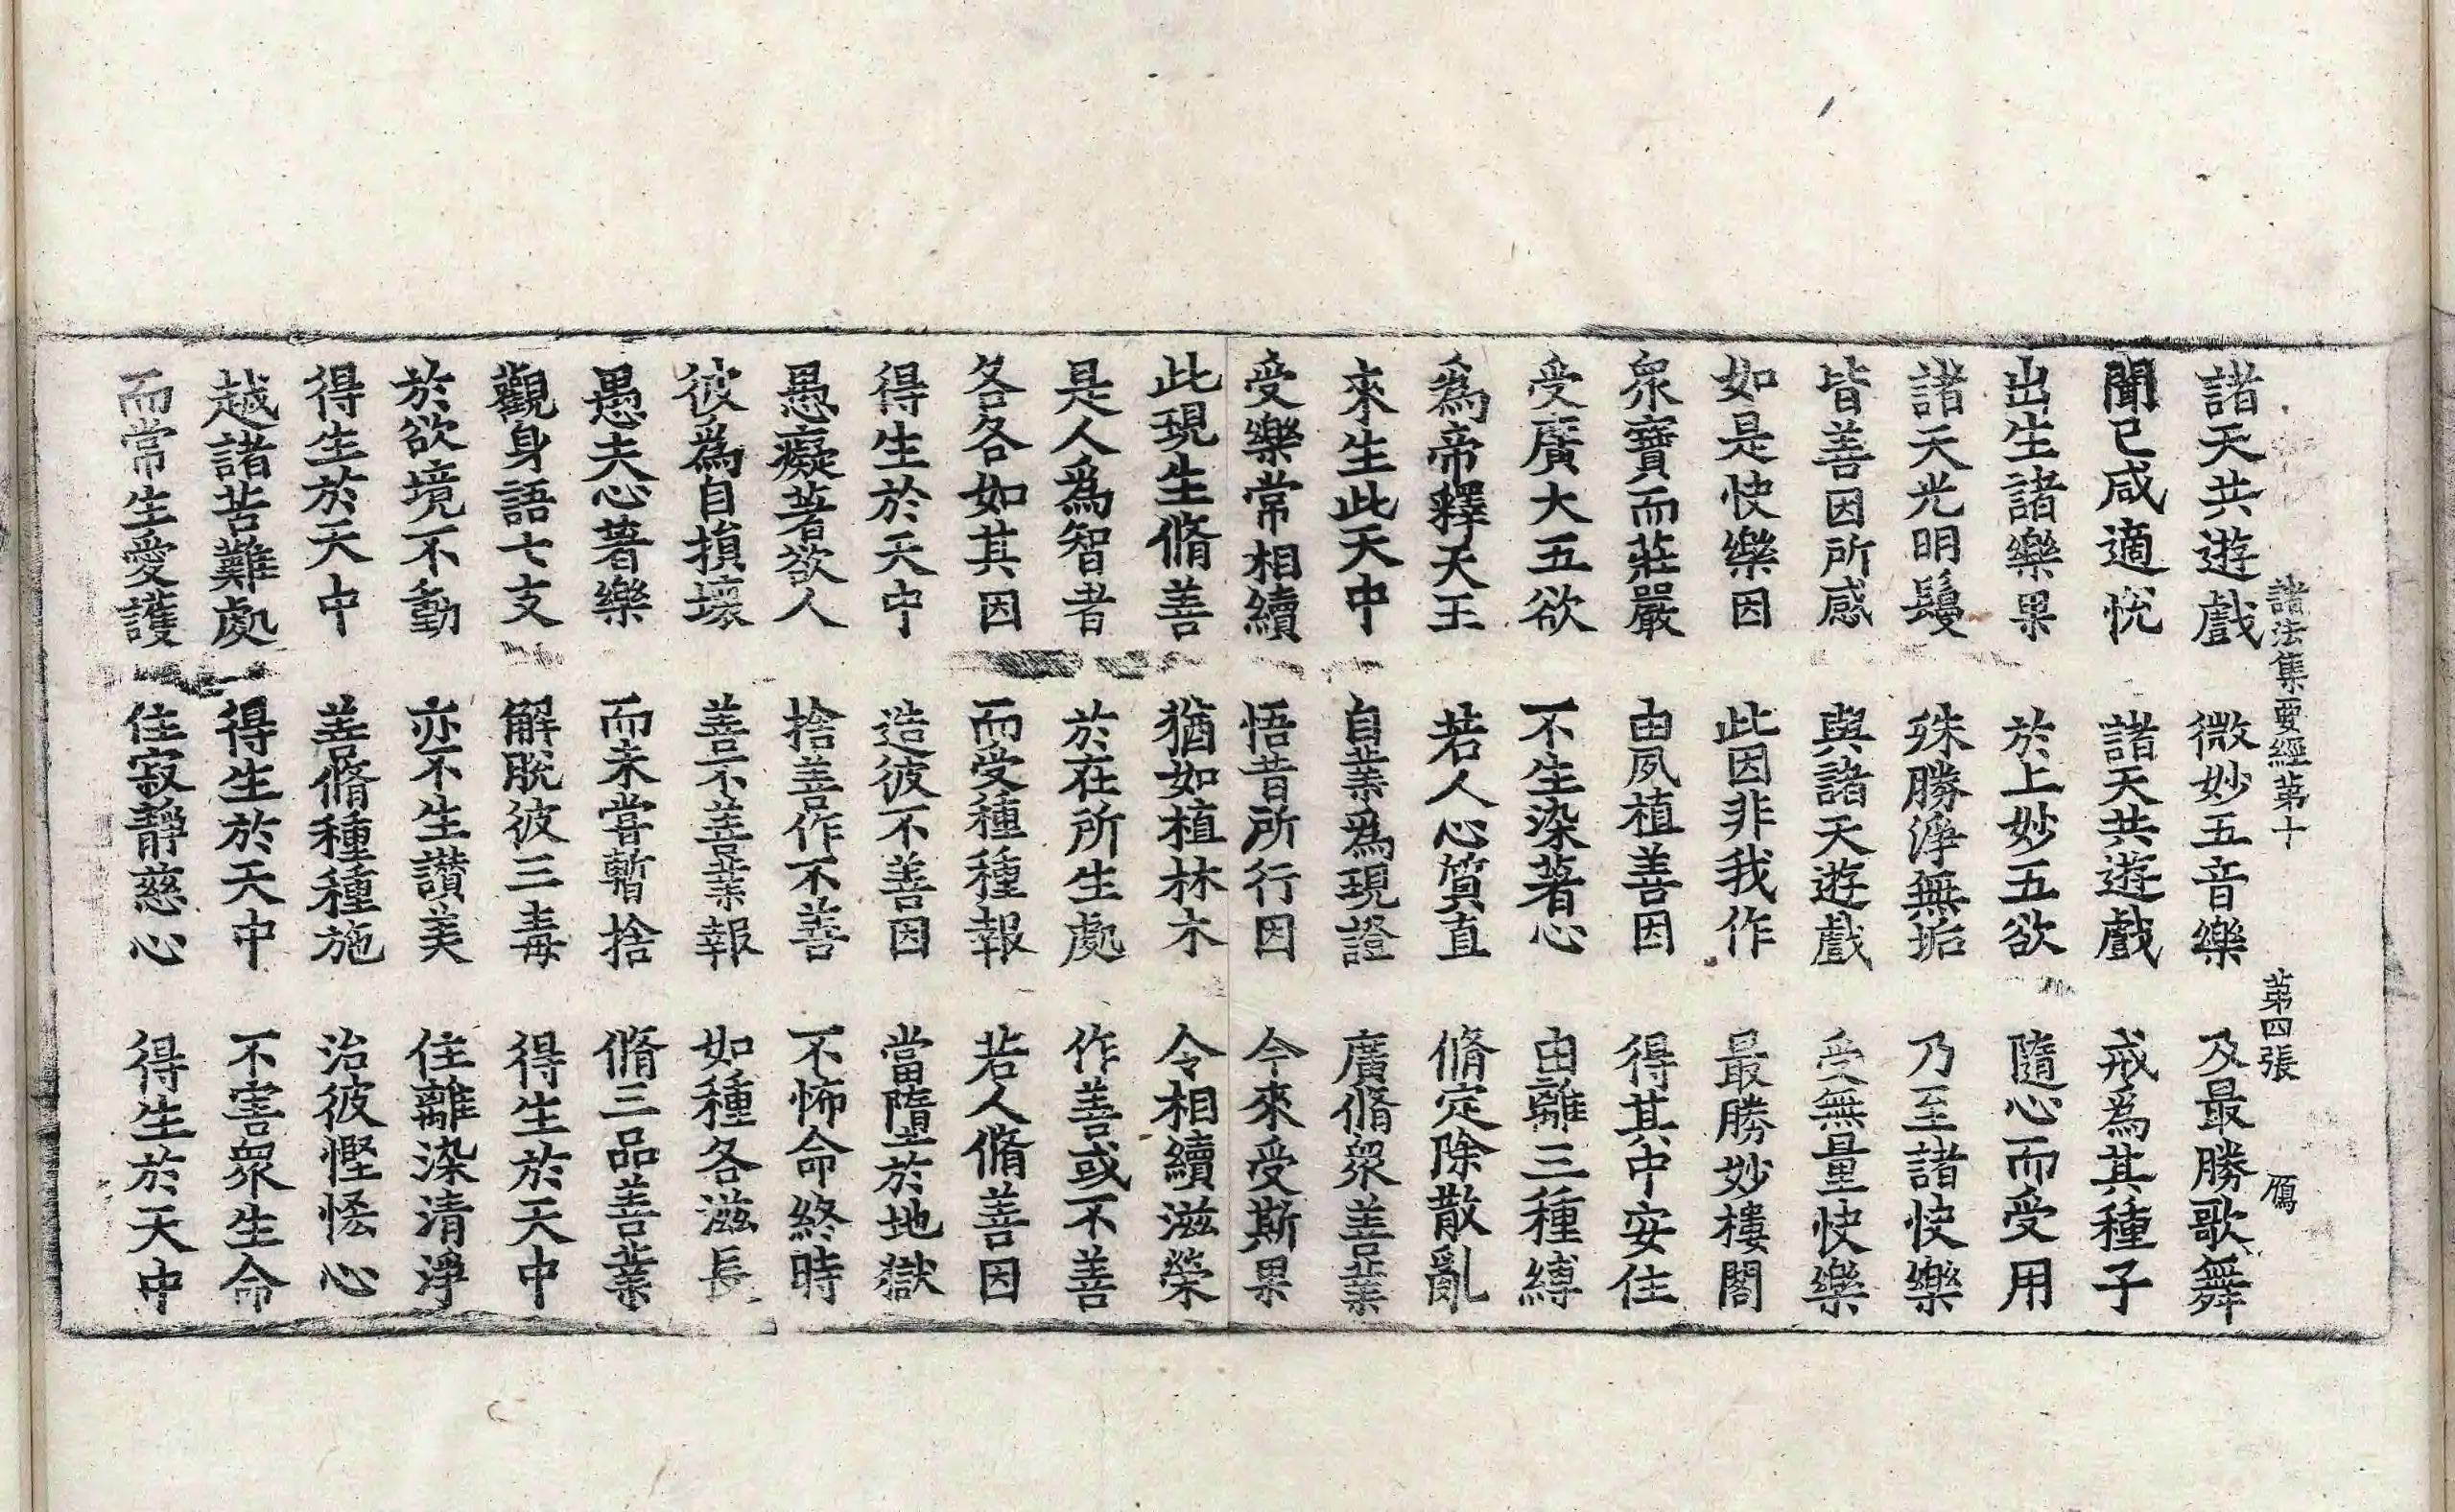 諸法集要經第十 第四張 鴈
諸天共遊戲 微妙五音樂 及最勝歌舞
聞已咸適恱 諸天共遊戲 戒為其種子
出生諸樂果 於上妙五欲 隨心而受用
諸天光明鬘 殊勝淨無垢 乃至諸快樂
皆善因所感 與諸天遊戲 受無量快樂
如是快樂因 此因非我作 最勝妙樓閣
衆寶而莊嚴 由夙植善因 得其中安住
受廣大五欲 不生染著心 由離三種縛
為帝釋天王 若人心質直 脩定除散亂
來生此天中 自業為現證 廣脩衆善業
受樂常相續 悟昔所行因 今來受斯果
此現生脩善 猶如植林木 令相續滋榮
是人為智者 於在所生處 作善或不善
各各如其因 而受種種報 若人脩善因
得生於天中 造彼不善因 當墮於地獄
愚癡著欲人 捨善作不善 不怖命終時
彼為自損壞 善不善業報 如種各滋長
愚夫心著樂 而未嘗暫捨 脩三品善業
觀身語七支 解脫彼三毒 得生於天中
於欲境不動 亦不生讚美 住離染清淨
得生於天中 善脩種種施 治彼慳悋心
越諸苦難處 得生於天中 不害衆生命
而常生愛護 住寂靜慈心 得生於天中